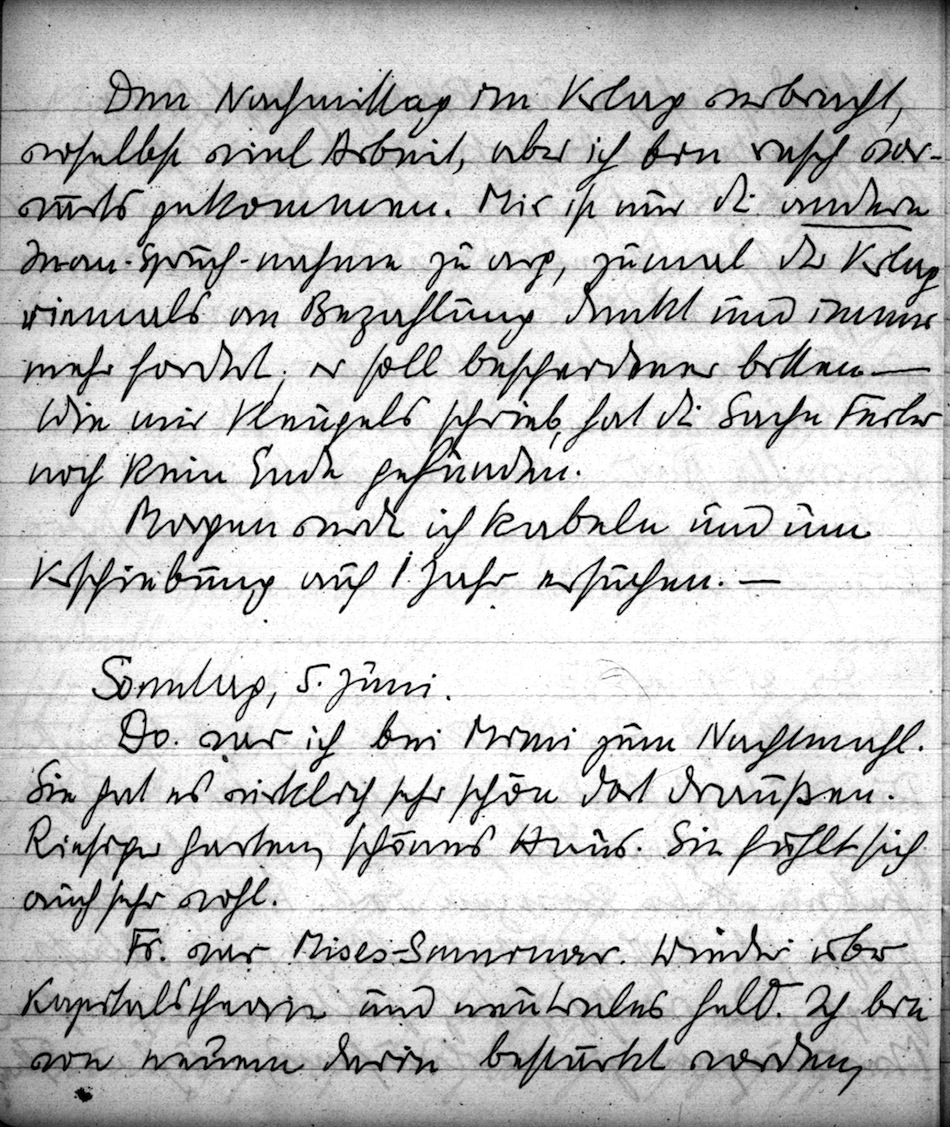 Den Nachmittag im Verlag verbracht,
woselbst viel Arbeit, aber ich bin rasch vor-
wärts gekommen. Mir ist nur die andere
Inan-Spruch-nahme zu arg, zumal der Verlag
niemals an Bezahlung denkt und immer
mehr fordert; er soll bescheidener bitten —
Wie mir Kleugels schrieb, hat die Sache
noch kein Ende gefunden.
Morgen werde ich kabeln und um
Verschiebung auf 1 Jahr ersuchen. —
Sonntag, 5. Juni.
Do. war ich bei Mimi zum Nachtmahl.
Sie hat es wirklich sehr schön dort draußen.
Riesiger Garten, schönes Haus. Sie fühlt sich
auch sehr wohl.
Fr. war Mises-Seminar. Wieder über
Kapitalstheorie und neutrales Geld. Ich bin
von neuem darin bestärkt worden,